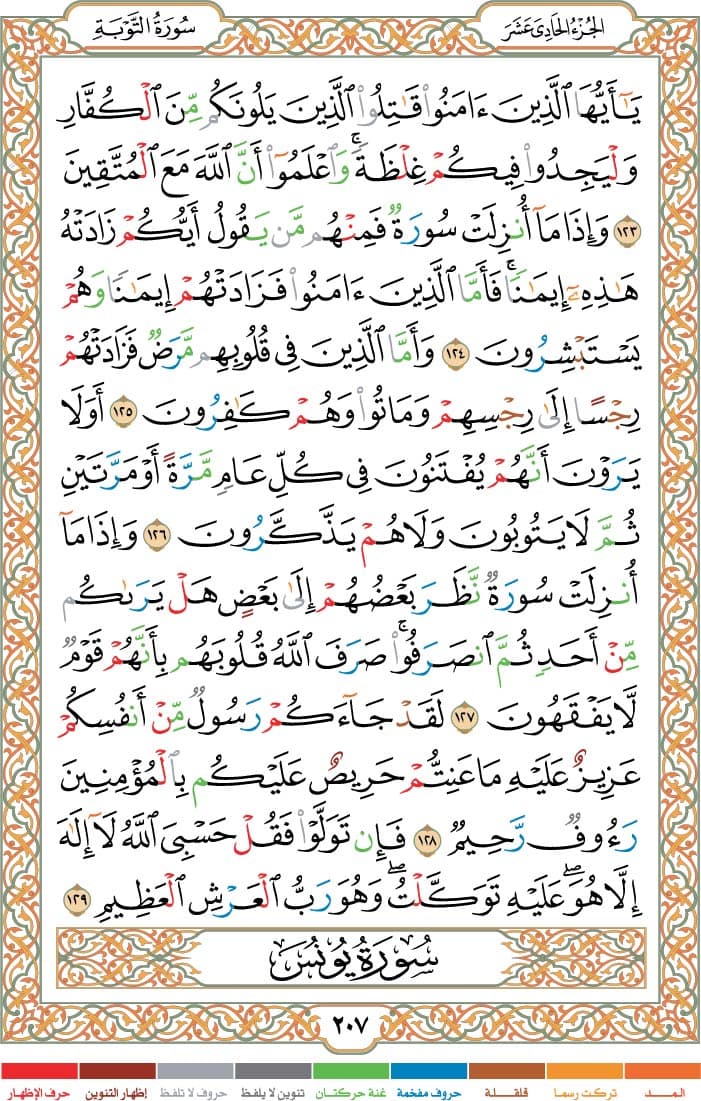 الجزء الحادي عشر
سورة التوبة
يَٰٓأَيُّهَا ٱلَّذِينَ ءَامَنُوا۟ قَٰتِلُوا۟ ٱلَّذِينَ يَلُونَكُم مِّنَ ٱلْكُفَّارِ
وَلْيَجِدُوا۟ فِيكُمْ غِلْظَةً ۚ وَٱعْلَمُوٓا۟ أَنَّ ٱللَّهَ مَعَ ٱلْمُتَّقِينَ
١٢٣ وَإِذَا مَآ أُنزِلَتْ سُورَةٌ فَمِنْهُم مَّن يَقُولُ أَيُّكُمْ زَادَتْهُ
هَٰذِهِۦٓ إِيمَٰنًا ۚ فَأَمَّا ٱلَّذِينَ ءَامَنُوا۟ فَزَادَتْهُمْ إِيمَٰنًا وَهُمْ
يَسْتَبْشِرُونَ ١٢٤ وَأَمَّا ٱلَّذِينَ فِى قُلُوبِهِم مَّرَضٌ فَزَادَتْهُمْ
رِجْسًا إِلَىٰ رِجْسِهِمْ وَمَاتُوا۟ وَهُمْ كَٰفِرُونَ ١٢٥ أَوَلَا
يَرَوْنَ أَنَّهُمْ يُفْتَنُونَ فِى كُلِّ عَامٍ مَّرَّةً أَوْ مَرَّتَيْنِ
ثُمَّ لَا يَتُوبُونَ وَلَا هُمْ يَذَّكَّرُونَ ١٢٦ وَإِذَا مَآ
أُنزِلَتْ سُورَةٌ نَّظَرَ بَعْضُهُمْ إِلَىٰ بَعْضٍ هَلْ يَرَىٰكُم
مِّنْ أَحَدٍ ثُمَّ ٱنصَرَفُوا۟ ۚ صَرَفَ ٱللَّهُ قُلُوبَهُم بِأَنَّهُمْ قَوْمٌ
لَّا يَفْقَهُونَ ١٢٧ لَقَدْ جَآءَكُمْ رَسُولٌ مِّنْ أَنفُسِكُمْ
عَزِيزٌ عَلَيْهِ مَا عَنِتُّمْ حَرِيصٌ عَلَيْكُم بِٱلْمُؤْمِنِينَ
رَءُوفٌ رَّحِيمٌ ١٢٨ فَإِن تَوَلَّوْا۟ فَقُلْ حَسْبِىَ ٱللَّهُ لَآ إِلَٰهَ
إِلَّا هُوَ ۖ عَلَيْهِ تَوَكَّلْتُ ۖ وَهُوَ رَبُّ ٱلْعَرْشِ ٱلْعَظِيمِ ١٢٩
سُورَةُ يُونُسَ
٢٠٧
المـــد
تركت رسما
قلقـــلة
حروف مفخمة
غنة حركتـــان
تنوين لا يلفظ
حروف لا تلفظ
إظهار التنوين
حرف الإظهار